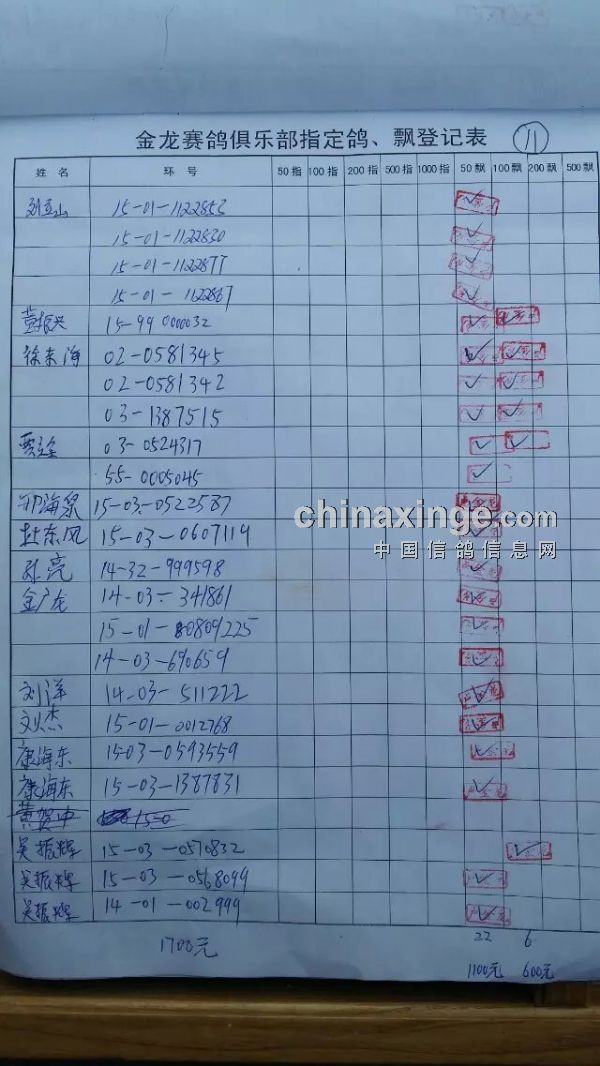 金龙赛鸽俱乐部指定鸽、飘登记表 11
姓名 环号 50指 100指 200指 500指 1000指 50飘 100飘 200飘 500飘
15-01-1122853 ✓
15-01-1122830 ✓
15-01-1122877 ✓
15-01-1122867 ✓
黄振兴 15-99 0000032 ✓ ✓
徐东海 02-0581345 ✓ ✓
02-0581342 ✓ ✓
03-1387515 ✓ ✓
03-0524317 ✓ ✓
55-0005045 ✓
邯海泉 15-03-0522587 ✓
chinaxinge.com
杜东风 15-03-0607119 ✓
中国信鸽信息网
孙亮 14-32-999598 ✓
金广龙 14-03-341861 ✓
15-01-80809225 ✓
14-03-690659 ✓
刘洋 14-03-511222 ✓
刘杰 15-01-0012768 ✓
康海东 15-03-0593559 ✓
康海东 15-03-1387831 ✓
黄贺中 150
吴振辉 15-03-0570832 ✓
吴振辉 15-03-0568099 ✓
吴振辉 14-01-002999 ✓
1700元 22 6
1100元 600元